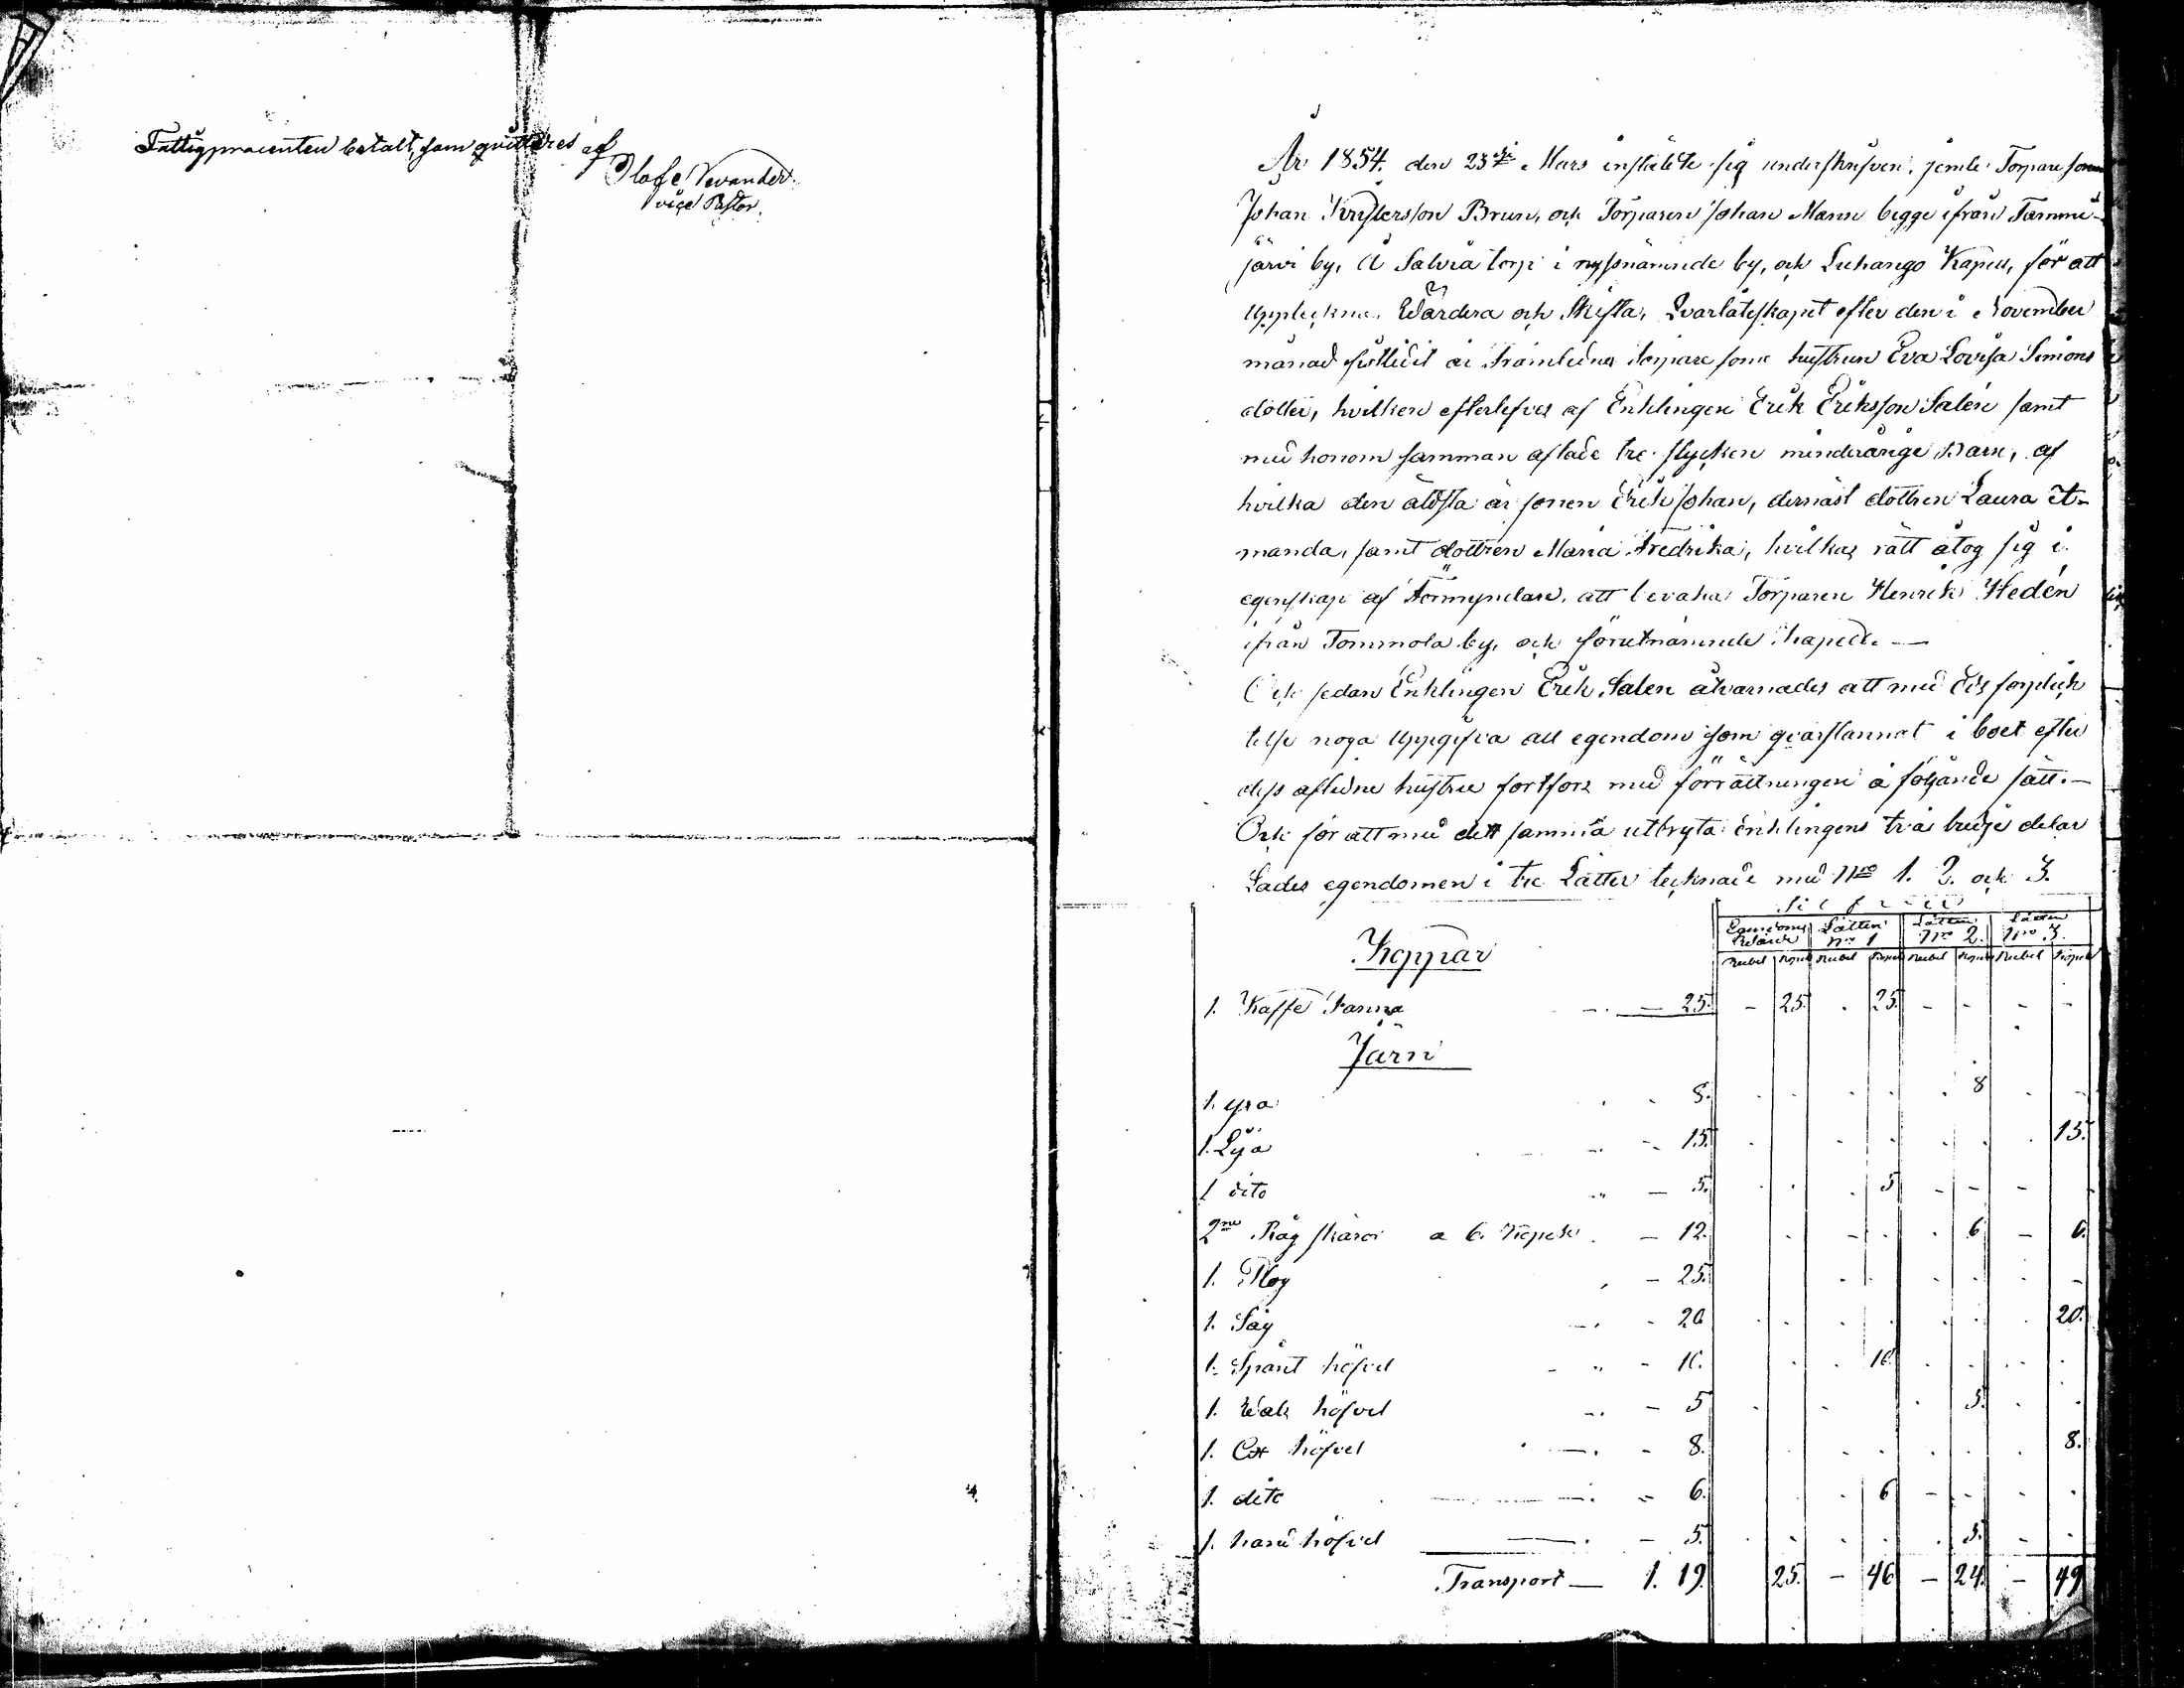 Fattigprocenten betalt, som quitteres af
Olof e Vevander
vice Pastor.
År 1854. den 23dje Mars instälte sig underskrifven, jemte Torpare sonen
Johan Kristersson Brun, och Torparen Johan Mann begge ifrån Tammi-
järvi by, å Salvia torp i nyssnämnde by, och Luhango Kapell, för att
uppteckna, Wärdera och Skifta, Qvarlåtskapet efter den i November
månad sistlidit år framledna Torpare sone hustrun Eva Lovisa Simons
dotter, hvilken efterlefves af Enklingen Erik Eriksson Salen samt
med honom samman aflade tre stycken minderårige Barn, af
hvilka den äldsta är sonen Erik Johan, dernäst dottren Laura A-
manda, samt dottren Maria Fredrika, hvilkas rätt åtog sig i
egenskap af Förmyndare, att bevaka Torparen Henrik Hedén
ifrån Tommola by, och förutnämnde kapell. —
Och sedan Enklingen Erik Salen åtvarnades att med Eds förplick
telse noga uppgifva all egendom som qvarstannat i boet efter
dess aflidne hustru fortfors med förrättningen å följande sätt. —
Och för att med dett samma utbryta Enklingens två tredje delar
Lades egendomen i tre Lätter tecknade med Nro 1. 2. och 3.
Silfver
Egendoms Wärde Låtten No 1 Låtten No 2. Låtten No 3.
Rubel Kopek Rubel Kopek Rubel Kopek Rubel Kopek
Koppar
1. Kaffe Panna — 25. - 25. . 25. - - - -
Järn
1. yxa 8. 8
1. Lÿa 15. 15.
1 dito — 5. 5
2ne Råg skäror a 6. Kopek — 12. 6 — 6.
1. Plog - 25.
1. Såg - 20 20.
1. Spånt höfvel - 10. 10.
1. Wals höfvel — 5 5.
1. Ox höfvel - 8. 8.
1. dito - 6. 6
1. hand höfvel - 5. 5.
Transport — 1. 19. 25. — 46 — 24. — 49